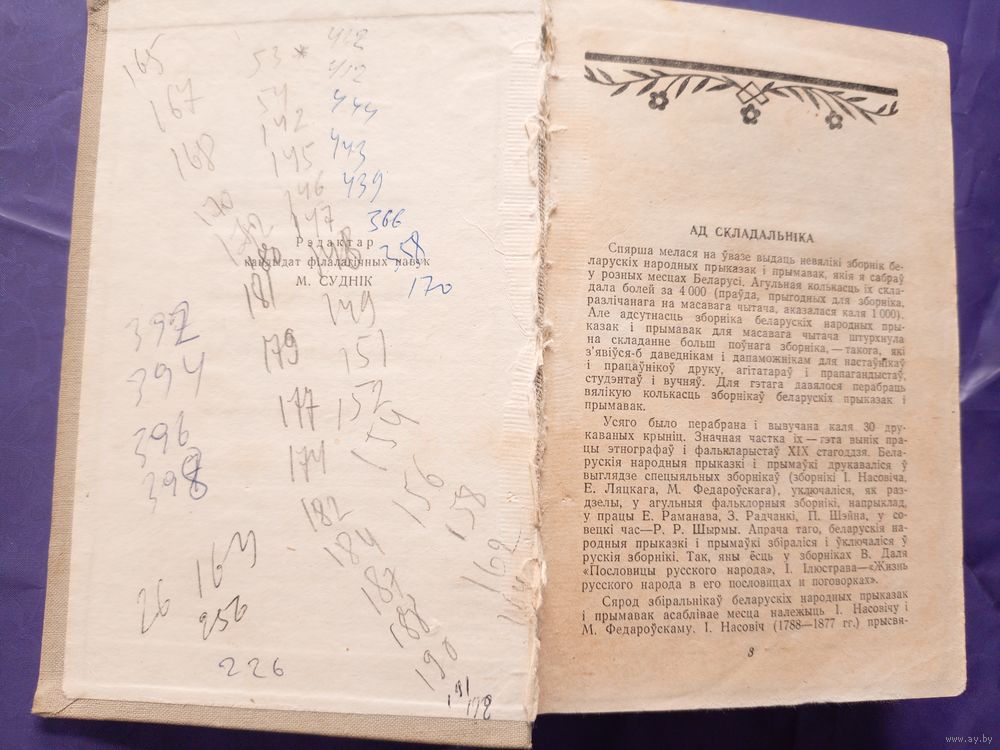 165
53 *
412
412
167
54
444
142
168
145
443
146
439
170
147
366
Рэдактар
кандыдат філалагічных навук
358
М. СУДНІК
170
181
149
394
179
151
396
177
152
398
174
154
156
182
158
184
162
164
187
26
256
188
190
226
191
АД СКЛАДАЛЬНІКА
Спярша мелася на ўвазе выдаць невялікі зборнік бе-
ларускіх народных прыказак і прымавак, якія я сабраў
у розных месцах Беларусі. Агульная колькасць іх скла-
дала болей за 4 000 (праўда, прыгодных для зборніка,
разлічанага на масавага чытача, аказалася каля 1 000).
Але адсутнасць зборніка беларускіх народных пры-
казак і прымавак для масавага чытача штурхнула
на складанне больш поўнага зборніка, — такога, які
з'явіўся-б даведнікам і дапаможнікам для настаўнікаў
і працаўнікоў друку, агітатараў і прапагандыстаў,
студэнтаў і вучняў. Для гэтага давялося перабраць
вялікую колькасць зборнікаў беларускіх прыказак і
прымавак.
Усяго было перабрана і вывучана каля 30 дру-
каваных крыніц. Значная частка іх — гэта вынік пра-
цы этнографаў і фалькларыстаў XIX стагоддзя. Бела-
рускія народныя прыказкі і прымаўкі друкаваліся ў
выглядзе спецыяльных зборнікаў (зборнікі І. Насовіча,
Е. Ляцкага, М. Федароўскага), уключаліся, як раз-
дзелы, у агульныя фальклорныя зборнікі, напрыклад,
у працы Е. Раманава, З. Радчанкі, П. Шэйна, у со-
вецкі час—Р. Р. Шырмы. Апрача таго, беларускія на-
родныя прыказкі і прымаўкі збіраліся і ўключаліся ў
рускія зборнікі. Так, яны ёсць у зборніках В. Даля
«Пословицы русского народа», І. Ілюстрава—«Жизнь
русского народа в его пословицах и поговорках».
Сярод збіральнікаў беларускіх народных прыказак
і прымавак асаблівае месца належыць І. Насовічу і
М. Федароўскаму. І. Насовіч (1788—1877 гг.) прысвя-
3
www.ay.by